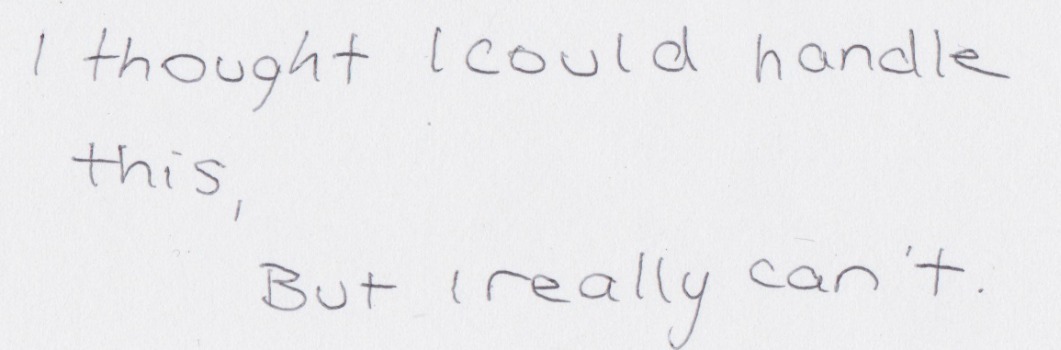 I thought I could handle
this,
But I really can't.